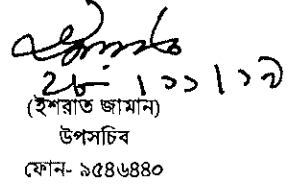 ২৮।১১।১৯
(ইশরাত জামান)
উপসচিব
ফোন- ৯৫৪৬৪৪০